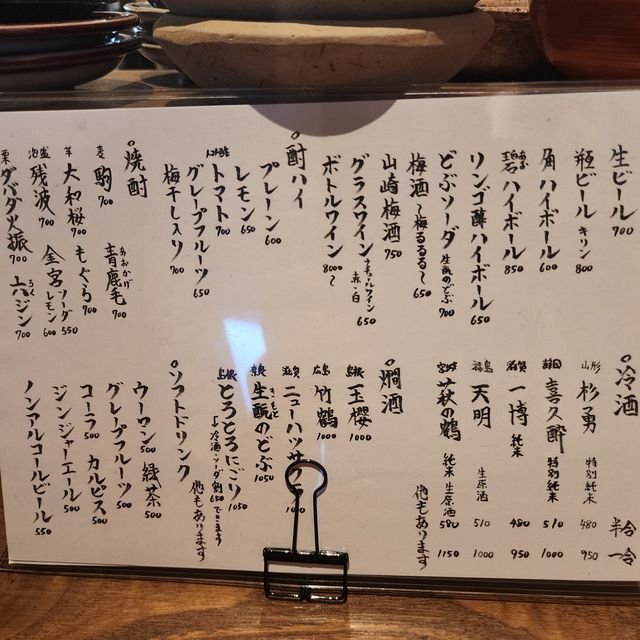 生ビール 700
瓶ビール キリン 800
角ハイボール 600
碧ハイボール 850
リンゴ酢ハイボール 650
どぶソーダ 生酛のどぶ 700
梅酒 〜梅るるる〜 650
山崎梅酒 750
グラスワイン ナチュールワイン 赤・白 650
ボトルワイン 8000〜
○酎ハイ
プレーン 600
レモン 650
トマト 700
グレープフルーツ 650
梅干し入り 700
○焼酎
麦 駒 700
青鹿毛 あおかげ 700
芋 大和桜 700
もぐら 700
泡盛 残波 700
金宮 ソーダ 550 レモン 600
栗 ダバダ火振 700
六 ろく ジン 700
○冷酒
半合 一合
山形 杉勇 特別純米 480 950
静岡 喜久酔 特別純米 510 1000
滋賀 一博 純米 480 950
福島 天明 生原酒 510 1000
宮城 萩の鶴 純米生原酒 580 1150
他もあります
○燗酒
島根 玉櫻 1000
広島 竹鶴 1000
滋賀 ニューハッサク 1000
奈良 生酛のどぶ きもと 1050
島根 とろとろにごり 1050
↓冷酒・ソーダ割 650 できます
他もあります
○ソフトドリンク
ウーロン 500
緑茶 500
グレープフルーツ 500
コーラ 500
カルピス 500
ジンジャーエール 500
ノンアルコールビール 550